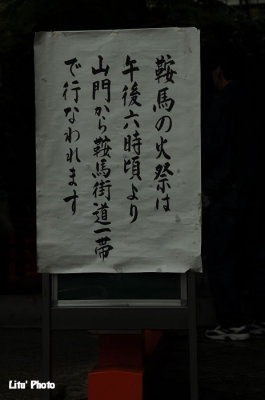 鞍馬の火祭は
午後六時頃より
山門から鞍馬街道一帯
で行なわれます
Litu' Photo